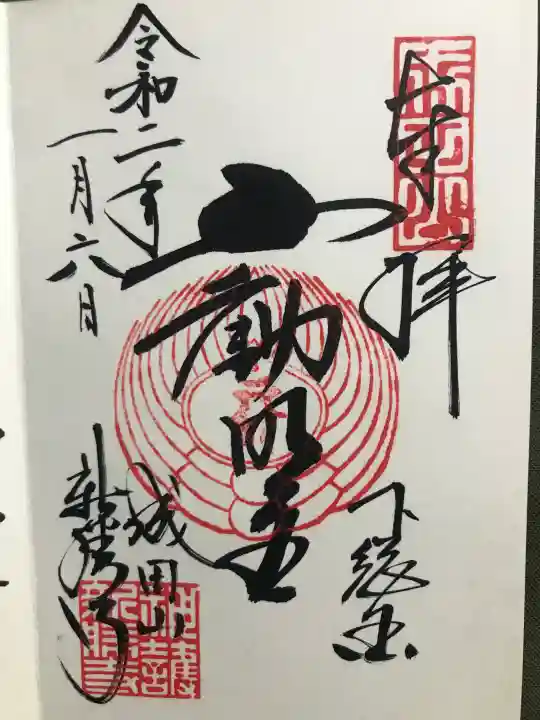 奉拝
下総国
不動明王
成田山
新勝寺
令和二年
一月六日